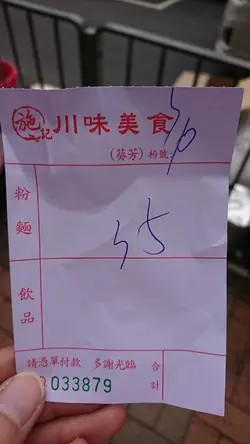 施記 川味美食
(葵芳) 枱號:
粉麵
飲品
請憑單付款 多謝光臨 合計
033879